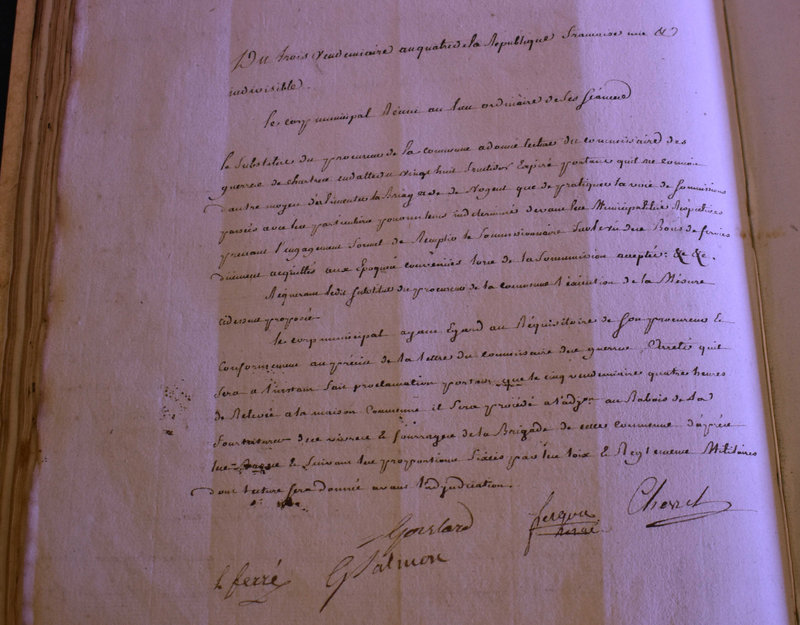 Du trois vendemiaire an quatre de la Republique francaise une &
indivisible.
le corp municipal Reuni au lieu ordinaire de ses séances
le Substitut du procureur de la commune a donné lecture du commissaire des
guerres de chartres en datte du vingt huit fructidor Expiré portant quil ne connoit
d'autre moyen d'alimenter la Brigade de Nogent que de pratiquer la voie de soumissions
passées avec les particuliers pour un tems indeterminé devant les Municipalités Respectives
prenant l'engagement formel de Remplir le Soumissionnaire sur le vu des Bons de fournies
duement acquittés aux Epoques convenues lors de la Soumission acceptée: &c &c.
Requerant ledit substitut du procureur de la commune l'exécution de la Mésure
cidessus proposée
le corp municipal ayant Egard au Réquisitoire de son procureur &
conformement au précis de la lettre du commissaire des guerres, Arrete quil
sera a l'instant fait proclamation portant que le cinq vendemiaire quatre heures
de Relevée a la maison Commune il sera procédé a l'adjon au Rabais de la
fourniture des vivres & fourrages de la Brigade de cette commune d'après
les & suivant les proportions fixées par les loix & Reglements Militaires
dont lecture sera donnée avant l'adjudication.
Goislard
Cheret
le ferré
G Salmon